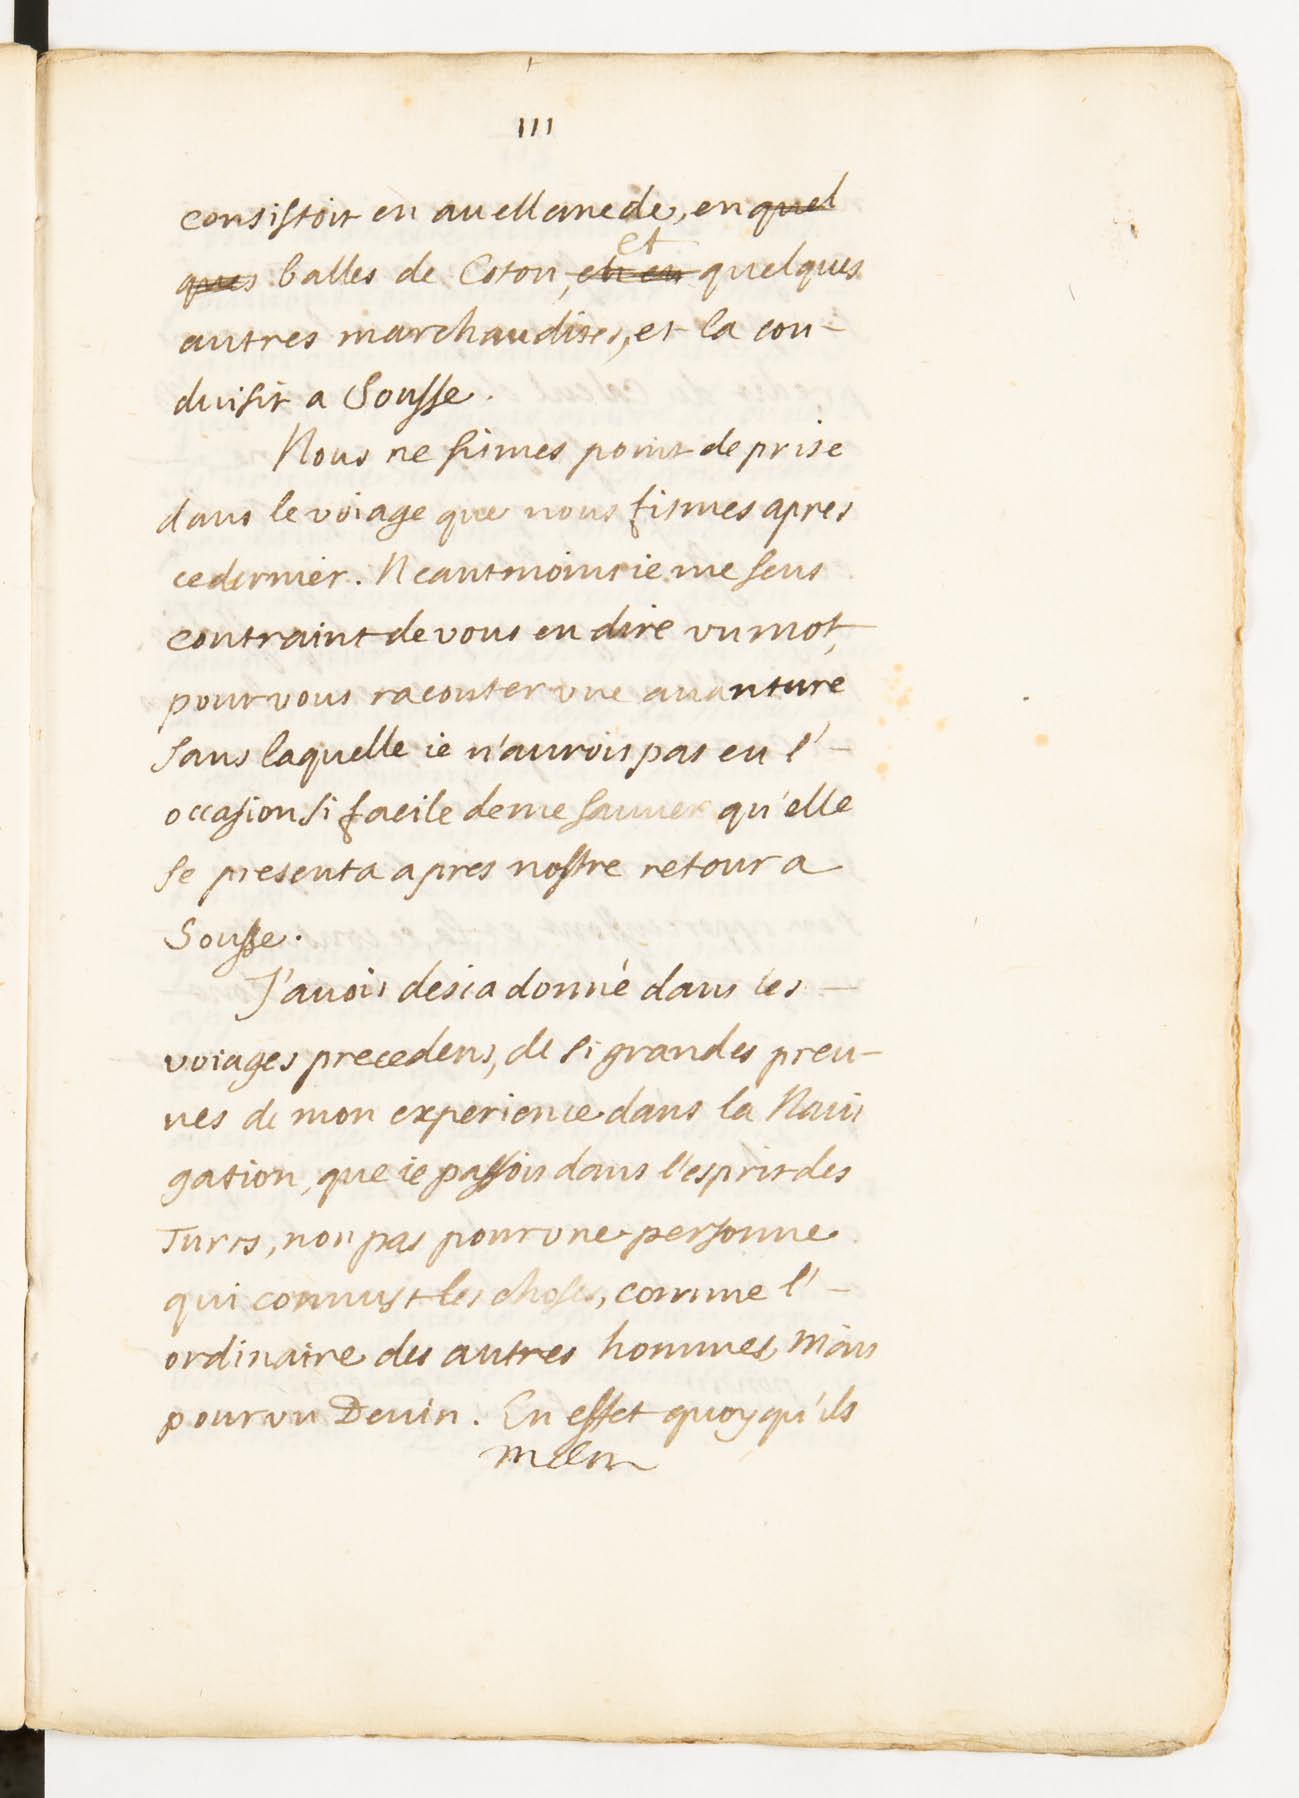 111
consistoit en auellanede, en quel
ques balles de Coton, et en et quelques
autres marchandises, et la con-
duisit a Sousse.
Nous ne fismes point de prise
dans le voiage que nous fismes apres
ce dernier. Neantmoins ie me sens
contraint de vous en dire vn mot,
pour vous raconter vne auanture
sans laquelle ie n'aurois pas eu l'-
occasion si facile de me sauuer qu'elle
se presenta apres nostre retour a
Sousse.
J'auois desia donné dans les
voiages precedens, de si grandes preu-
ues de mon experience dans la Naui
gation, que ie passois dans l'esprit des
Turcs, non pas pour vne personne
qui connust les choses, comme l'-
ordinaire des autres hommes, mais
pour vn Deuin. En effet quoy qu'ils